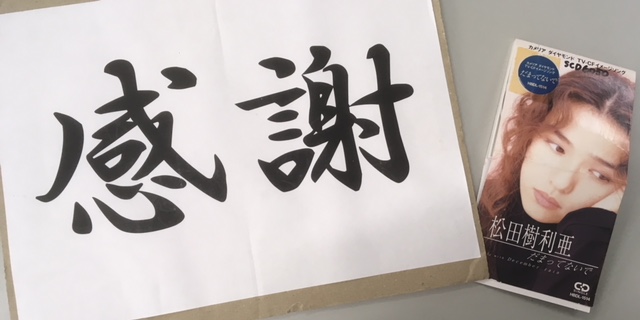 感謝
カメリア ダイヤモンド TV-CFイメージソング
だまってないで
松田樹利亜
だまってないで
CD